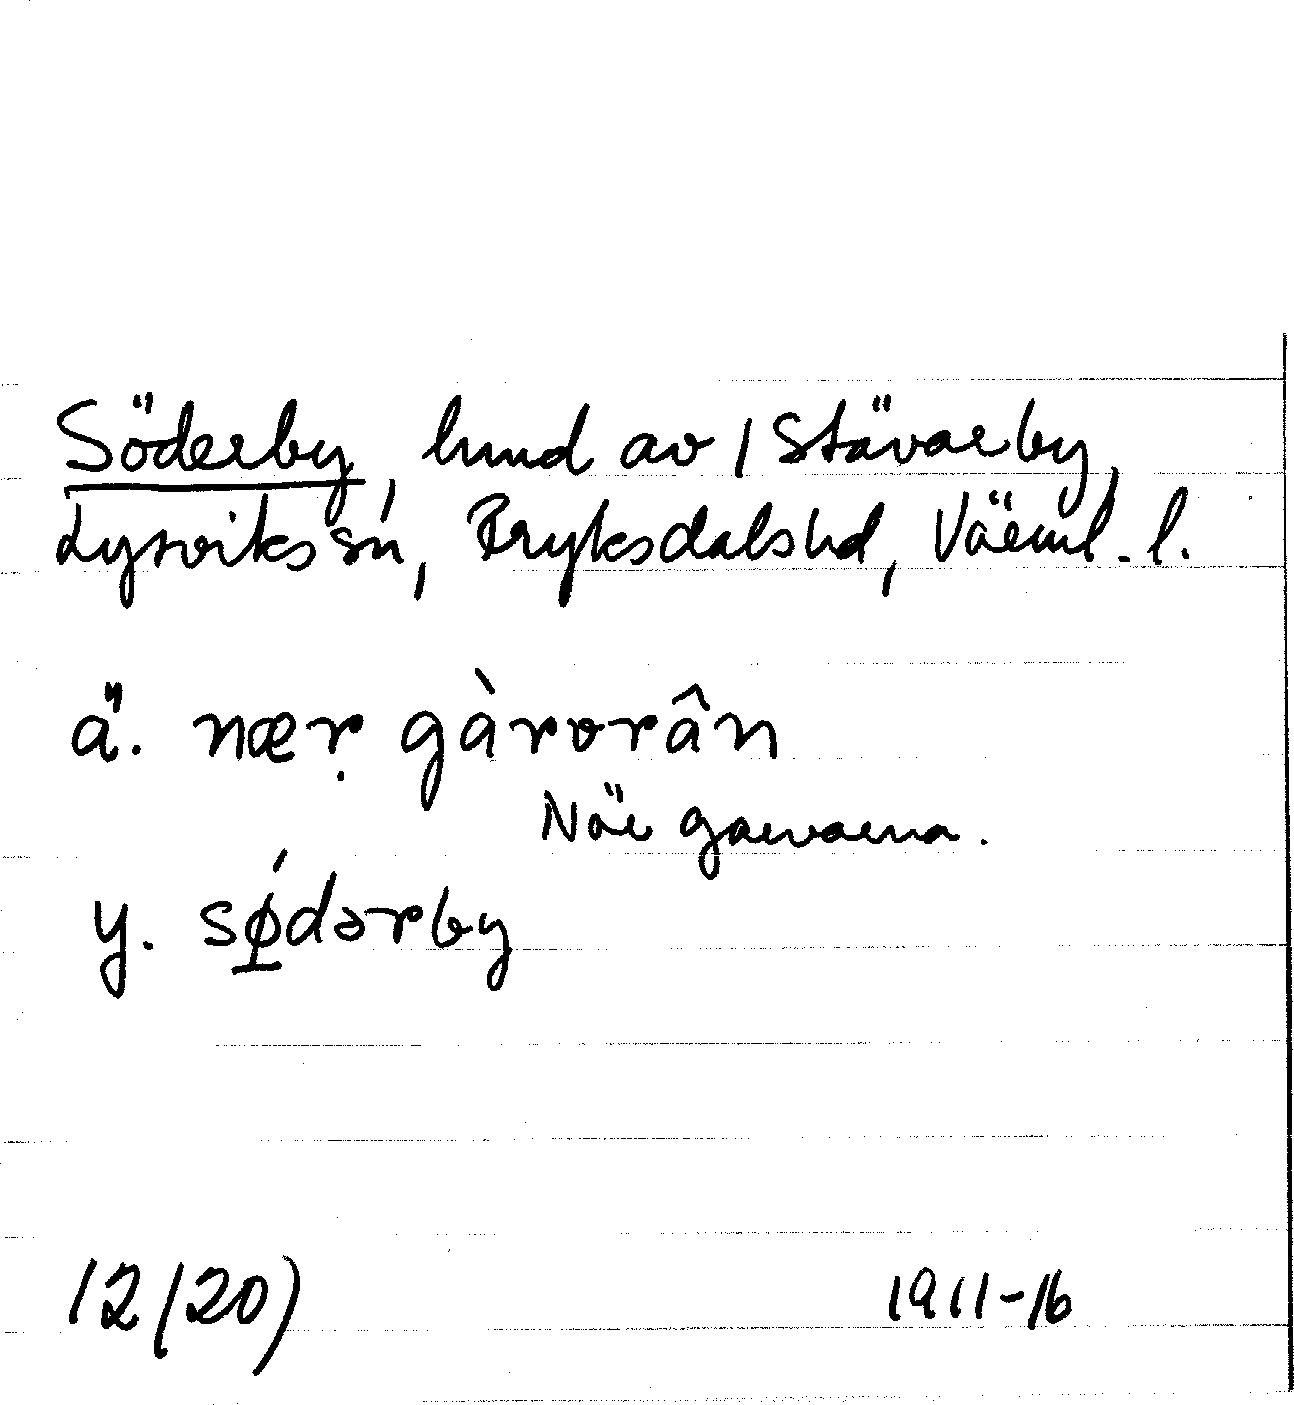 Söderby, hmd av 1 Stävarby,
Lysviks sn, Fryksdals hd, Värml. l.
ä. næṛ gàrorân
När garvarna.
y. sǿdərby
12(20)
1911-16